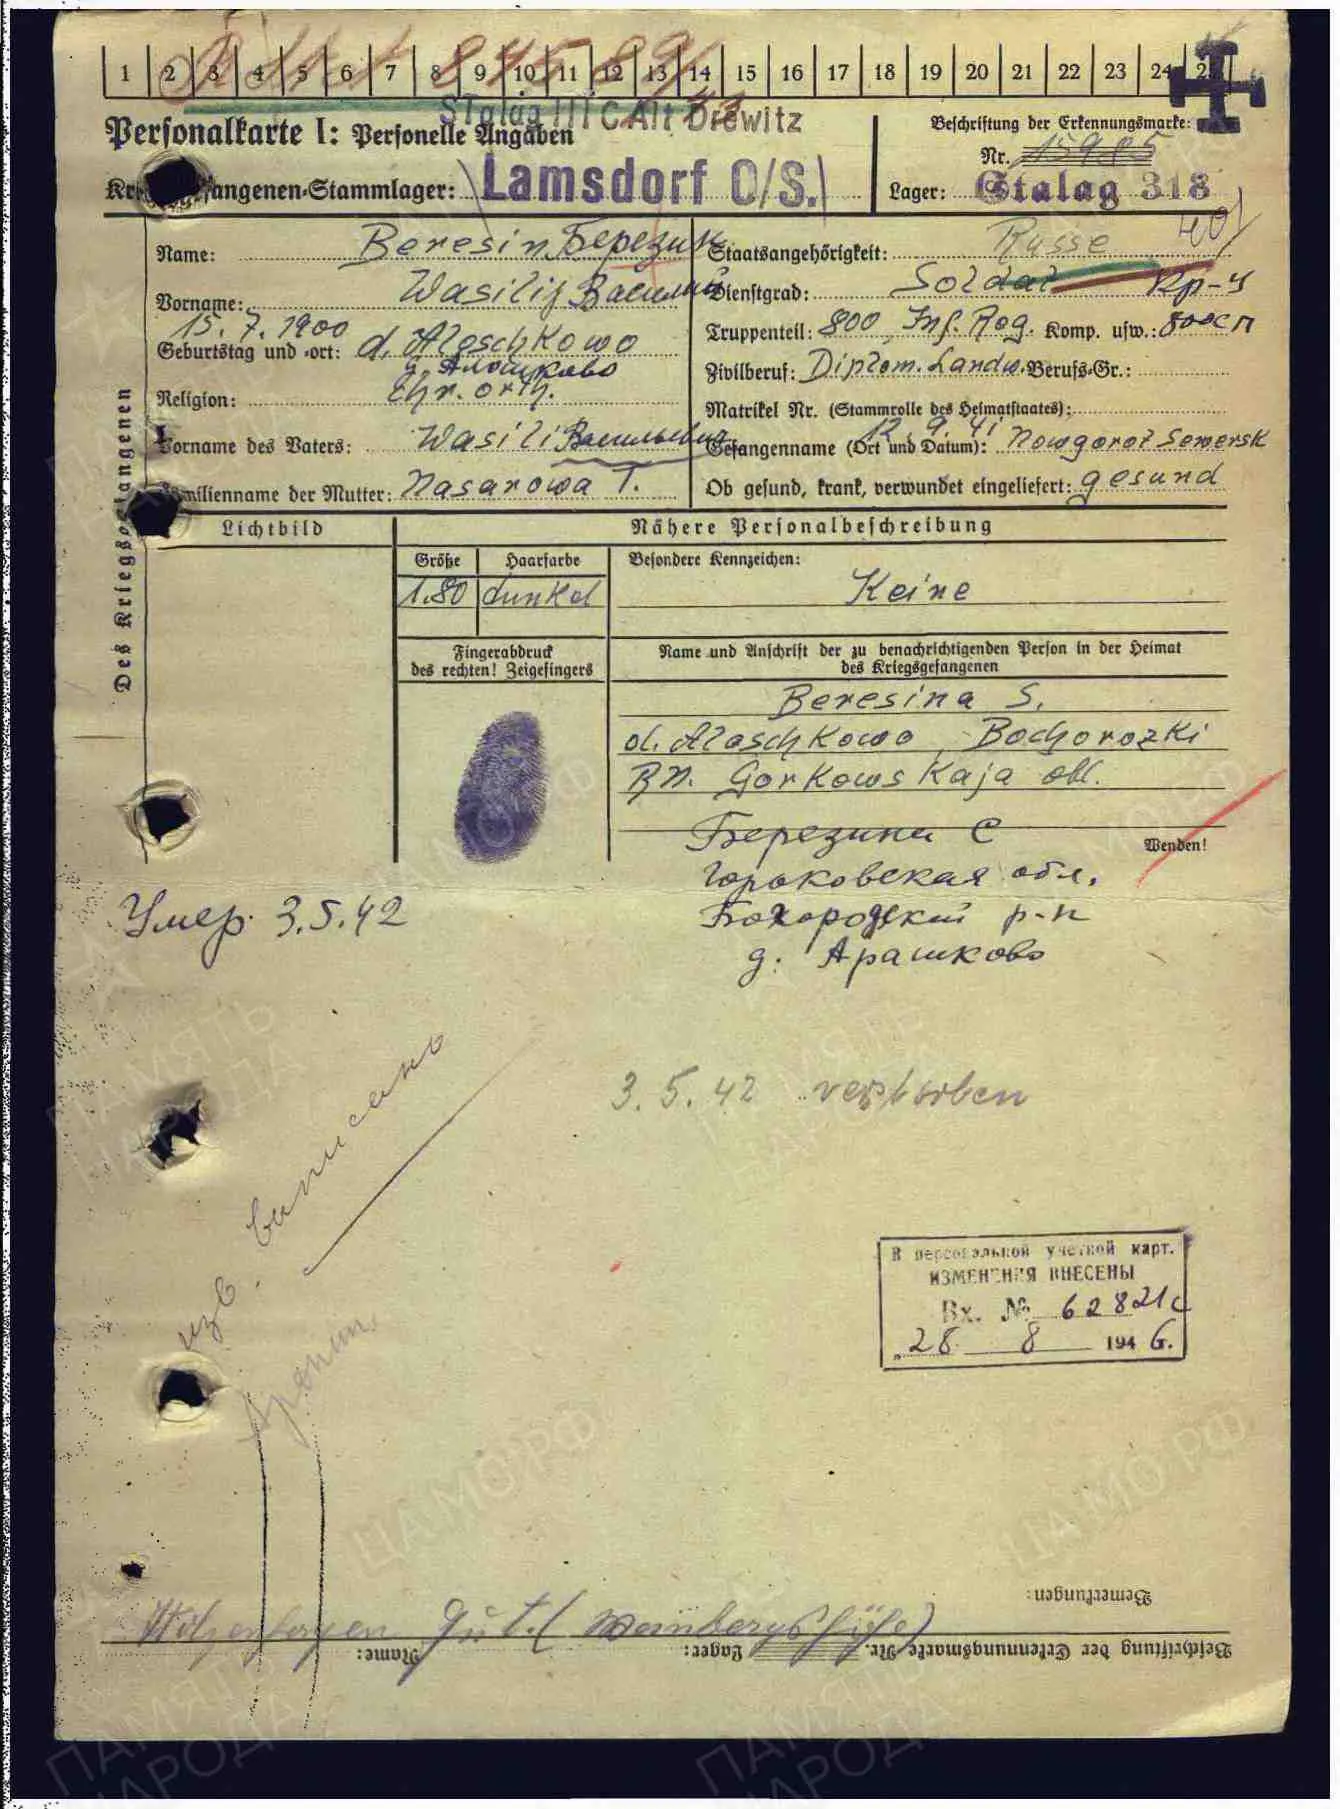 1 2 3 4 5 6 7 8 9 10 11 12 13 14 15 16 17 18 19 20 21 22 23 24 25
Stalag III C Alt Drewitz
Personalkarte I: Personelle Angaben
Kriegsgefangenen-Stammlager: Lamsdorf O/S.
Beschriftung der Erkennungsmarke:
Nr. 15985
Lager: Stalag 318
Des Kriegsgefangenen
Name: Beresin Березин
Vorname: Wasilij Василий
15. 7. 1900
Geburtstag und -ort: d. Aloschkowo
д. Алошково
Religion: Chr. orth.
Vorname des Vaters: Wasili Васильевич
Familienname der Mutter: Nasarowa T.
Staatsangehörigkeit: Russe
Dienstgrad: Soldat Кр-ц
Truppenteil: 800 Inf. Reg. Komp. usw.: 800 сп
Zivilberuf: Diplom. Landw. Berufs-Gr.:
Matrikel Nr. (Stammrolle des Heimatstaates):
12. 9. 41
Gefangenname (Ort und Datum): Nowgorot Sewersk
Ob gesund, krank, verwundet eingeliefert: gesund
Lichtbild
Nähere Personalbeschreibung
Größe Haarfarbe Besondere Kennzeichen:
1.80 dunkel Keine
Fingerabdruck
des rechten! Zeigefingers
Name und Anschrift der zu benachrichtigenden Person in der Heimat
des Kriegsgefangenen
Beresina S.
d. Aloschkowo, Bochorozki
RN. Gorkowskaja obl.
Березина С
Wenden!
Горьковская обл.
Богородский р-н
д. Арашково
Умер 3.5.42
3.5.42 verstorben
изв. выписано
В персональной учетной карт.
ИЗМЕНЕНИЯ ВНЕСЕНЫ
Вх. № 62821с
„28 8 1946 г.
Bemerkungen:
Gut. (Weinbergshöhe)
Beschriftung der Erkennungsmarke Nr. Lager: Name:
ЦАМО.РФ
ПАМЯТЬ
НАРОДА